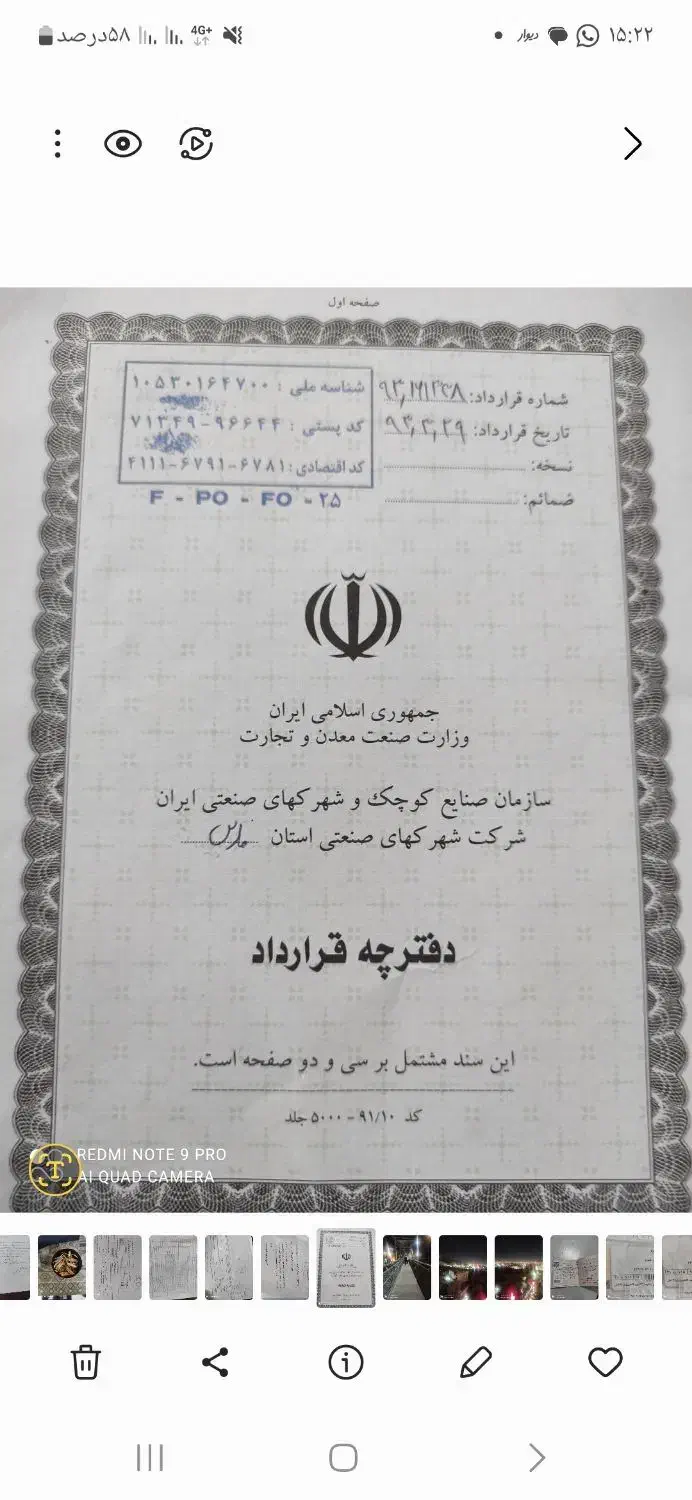 ۱۵:۲۲ دیوار 4G+ ۵۸درصد
صفحه اول
شماره قرارداد:
تاریخ قرارداد: ۹۳,۳,۲۹
نسخه:
ضمائم:
شناسه ملی : ۱۰۵۳۰۱۶۴۷۰۰
کد پستی : ۹۶۶۴۴-۷۱۳۴۹
کد اقتصادی : ۶۷۸۱-۶۷۹۱-۴۱۱۱
F - PO - FO - ۲۵
جمهوری اسلامی ایران
وزارت صنعت معدن و تجارت
سازمان صنایع کوچک و شهرکهای صنعتی ایران
شرکت شهرکهای صنعتی استان فارس
دفترچه قرارداد
این سند مشتمل بر سی و دو صفحه است.
کد ۹۱/۱۰ - ۵۰۰۰ جلد
REDMI NOTE 9 PRO
AI QUAD CAMERA